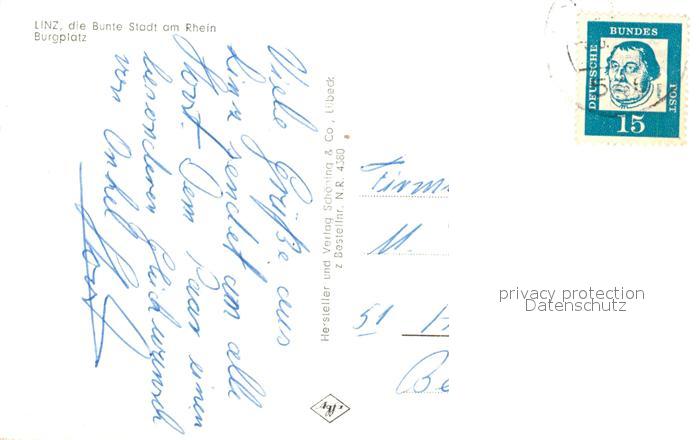 LINZ, die Bunte Stadt am Rhein
Burgplatz
Viele Grüße aus
Linz sendet am alle
Horst. Dem Paar einen
besonderen Glückwunsch
von Onkel Horst
Hersteller und Verlag Schöning & Co., Lübeck
z Bestellnr. N.R. 4380
DEUTSCHE
BUNDES
POST
15
Firm
M.
51
Be
privacy protection
Datenschutz